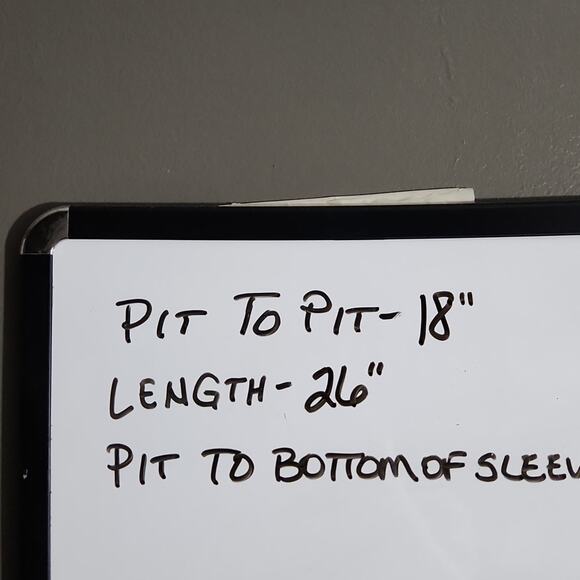 PIT TO PIT- 18"
LENGTH- 26"
PIT TO BOTTOM OF SLEEV